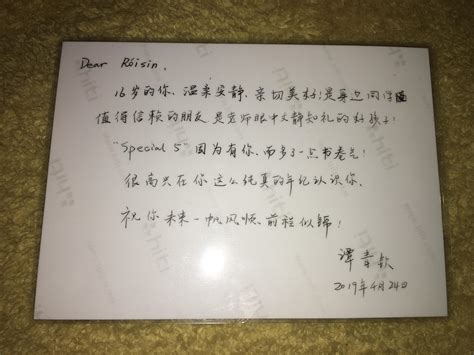 Dear Róisin,
16岁的你、温柔安静、亲切美好!是身边同学最
值得信赖的朋友 是老师眼中文静知礼的好孩子!
"Special 5"因为有你、而多了一点书卷气!
很高兴在你这么纯真的年纪认识你、
祝你未来一帆风顺、前程似锦!
谭青钦
2019年4月24日
hiti